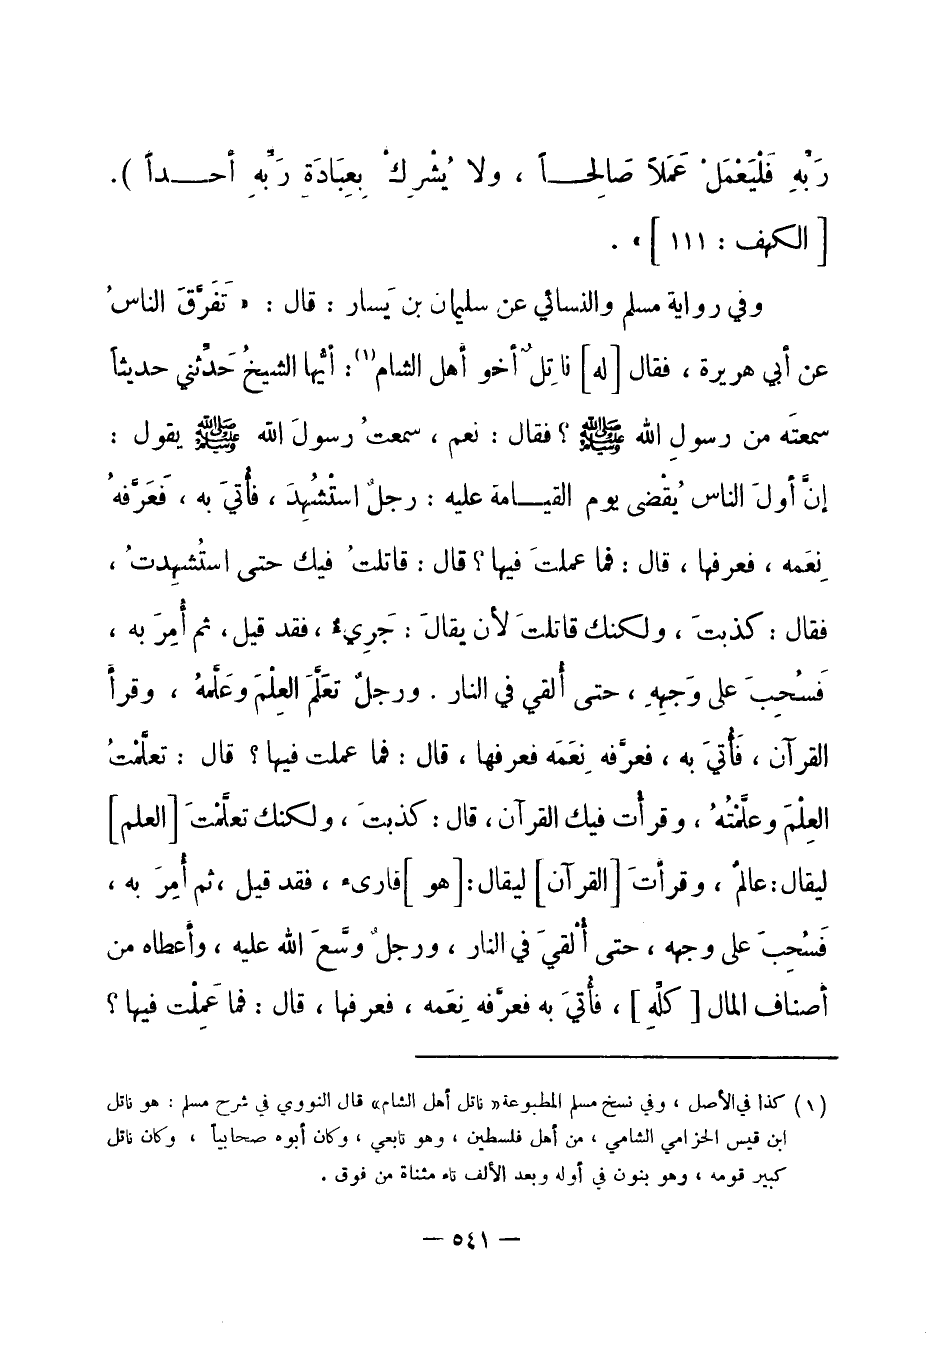 رَبِّهِ فَلْيَعْمَلْ عَمَلاً صَالِحـــاً ، ولا يُشْرِكْ بِعِبَادَةِ رَبِّهِ أحـــداً ) .
[ الكهف : ١١١ ] » .
وفي رواية مسلم والنسائي عن سليمان بن يَسار : قال : « تَفَرَّقَ الناسُ
عن أبي هريرة ، فقال [ له ] ناتِلٌ أخو أهل الشام(١) : أيُّها الشيخُ حَدِّثني حديثاً
سمعتَه من رسولِ الله ﷺ ؟ فقال : نعم ، سمعتُ رسولَ الله ﷺ يقول :
إنَّ أولَ الناس يُقْضى يوم القيـــامة عليه : رجلٌ استُشْهِدَ ، فأُتيَ به ، فَعَرَّفهُ
نِعَمه ، فعرفها ، قال : فما عملتَ فيها ؟ قال : قاتلتُ فيك حتى استُشهِدتُ ،
فقال : كذبتَ ، ولكنك قاتلتَ لأن يقالَ : جَرِيءٌ ، فقد قيل ، ثم أُمِرَ به ،
فَسُحِبَ على وَجهِهِ ، حتى أُلقي في النار . ورجلٌ تعَلَّمَ العِلْمَ وعَلَّمهُ ، وقرأَ
القرآن ، فَأُتيَ به ، فعرَّفه نِعَمَه فعرفها ، قال : فما عملت فيها ؟ قال : تعلَّمْتُ
العِلْمَ وعلَّمْتُهُ ، وقرأت فيك القرآن ، قال : كذبتَ ، ولكنك تعلَّمْتَ [ العلم ]
ليقال : عالمٌ ، وقرأتَ [ القرآن ] ليقال : [ هو ] قارىء ، فقد قيل ، ثم أُمِرَ به ،
فَسُحِبَ على وجهه ، حتى أُلْقيَ في النار ، ورجلٌ وسَّعَ الله عليه ، وأعطاه من
أصناف المال [ كلِّهِ ] ، فأُتيَ به فعرَّفه نِعَمه ، فعرفها ، قال : فما عَمِلْت فيها ؟
(١) كذا في الأصل ، وفي نسخ مسلم المطبوعة « ناتل أهل الشام » قال النووي في شرح مسلم : هو ناتل
ابن قيس الحزامي الشامي ، من أهل فلسطين ، وهو تابعي ، وكان أبوه صحابياً ، وكان ناتل
كبير قومه ، وهو بنون في أوله وبعد الألف تاء مثناة من فوق .
— ٥٤١ —